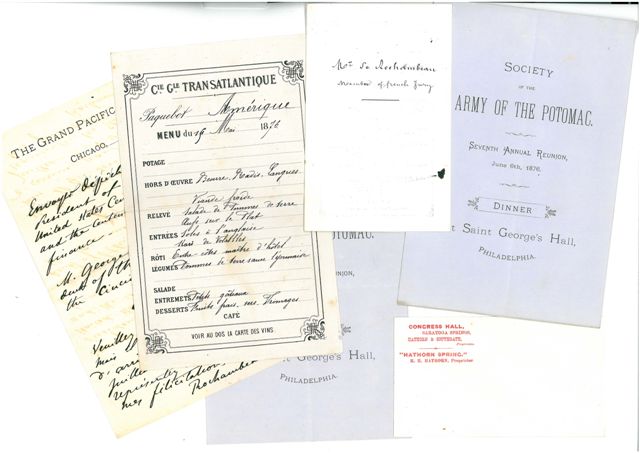 THE GRAND PACIFIC
CHICAGO,
Envoyer dépêch
President of
United States Cen
and the Centen
finance
M. George
the Cincin
Veuillez
mais
d'arri
juillet
mes félicitations
Rochambeau
CIE GLE TRANSATLANTIQUE
Paquebot Amérique
MENU du 16 Mai 1876
POTAGE
HORS D'ŒUVRE Beurre, Radis, Langues
Viande froide
RELEVÉ Salade de Pommes de terre
Œufs sur le Plat
ENTRÉES Soles à l'anglaise
RÔTI Entre côtes maître d'hôtel
LÉGUMES Pommes de terre sauce Lyonnaise
SALADE
ENTREMETS Petits gâteaux
DESSERTS Fruits frais, secs, Fromages
CAFÉ
VOIR AU DOS LA CARTE DES VINS
Mr de Rochambeau
Member of french Jury
SOCIETY
OF THE
ARMY OF THE POTOMAC.
SEVENTH ANNUAL REUNION,
JUNE 6th, 1876.
DINNER
T SAINT GEORGE'S HALL,
PHILADELPHIA.
OTOMAC.
NION,
T GEORGE'S HALL,
PHILADELPHIA.
CONGRESS HALL,
SARATOGA SPRINGS,
HATHORN & SOUTHGATE,
Proprietors
"HATHORN SPRING."
H. H. HATHORN, Proprietor